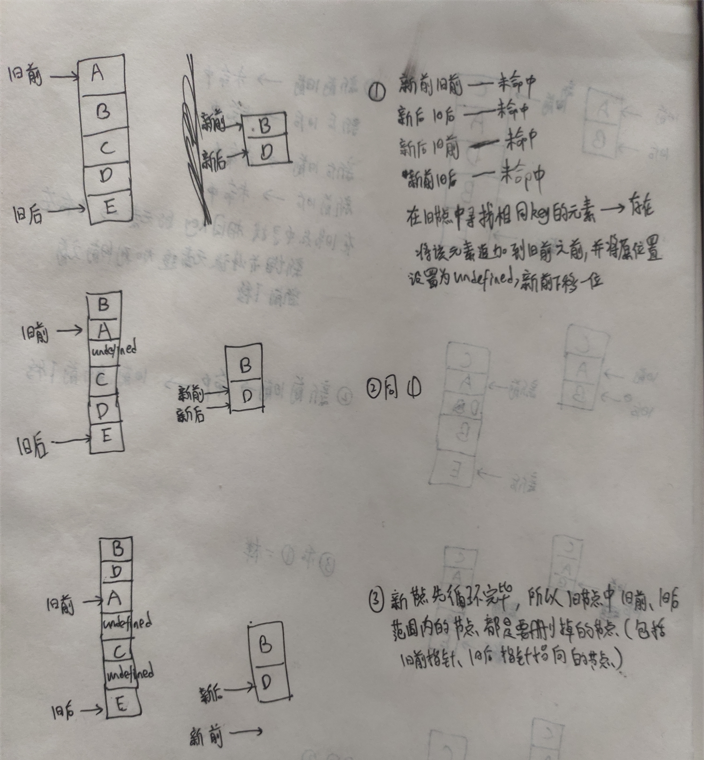 旧前 A
B
C
D
旧后 E
新前 B
新后 D
① 新前旧前 — 未命中
新后旧后 — 未命中
新后旧前 — 未命中
新前旧后 — 未命中
在旧节点中寻找相同key的元素 → 存在
将该元素追加到旧前之前,并将原位置
设置为undefined,新前下移一位
B
旧前 A
undefined
C
D
旧后 E
B
新前 D
新后
②同①
B
D
旧前 A
undefined
C
undefined
旧后 E
B
新后 D
新前
③ 新节点先循环完毕,所以旧节点中旧前、旧后
范围内的节点都是要删掉的节点(包括
旧前指针、旧后指针指向的节点)